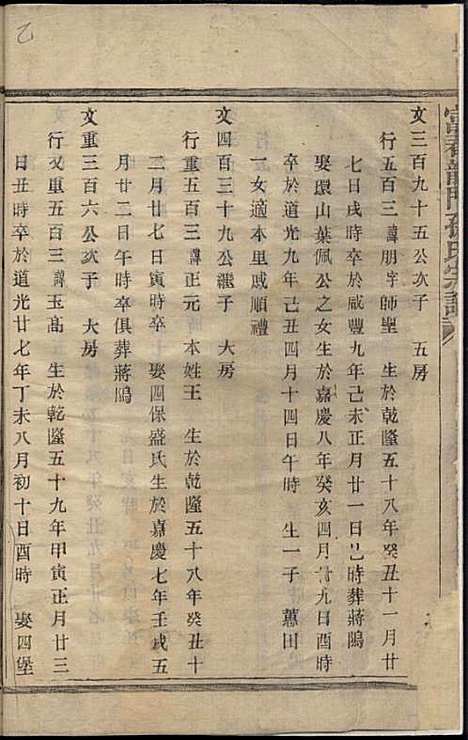 富春龍門孫氏宗譜
文三百九十五公次子　五房
行五百三諱朋字師聖　生於乾隆五十八年癸丑十一月廿
七日戌時卒於咸豐九年己未正月廿一日巳時葬蔣隝
娶環山葉佩公之女生於嘉慶八年癸亥四月廿九日酉時
卒於道光九年己丑四月十四日午時　生一子　蕙田
一女適本里戚順禮
文四百三十九公繼子　大房
行重五百三諱正元　本姓王　生於乾隆五十八年癸丑十
二月廿七日寅時卒　娶四保盛氏生於嘉慶七年壬戌五
月廿二日午時卒俱葬蔣隝
文重三百六公次子　大房
行文重五百三諱玉高　生於乾隆五十九年甲寅正月廿三
日丑時卒於道光廿七年丁未八月初十日酉時　娶四堡
乙